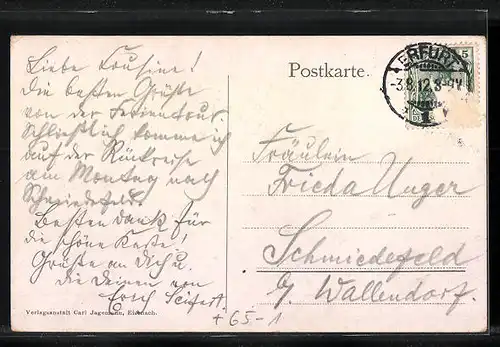 Liebe Kousine!
Die besten Grüße
von der Ferientour.
Schließlich komme ich
auf der Rückreise
am Montag nach
Schmiedefeld.
Besten Dank für
die schöne Karte!
Grüße an Dich u.
die Deinen von
Erich Seifert.
Verlagsanstalt Carl Jagemann, Eisenach.
Postkarte.
ERFURT
-3.8.12.8-9V
1
5
Fräulein
Frieda Unger
Schmiedefeld
b/ Wallendorf.
+ 65-1